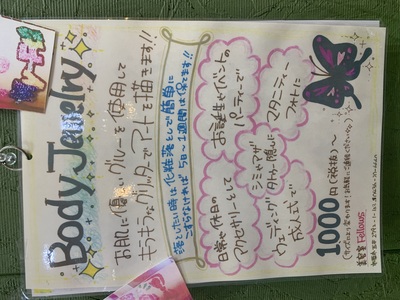 Body Jewelry
お肌に優しいグルーを使用して
キラキラなグリッターでアートを描きます!!
落としたい時は化粧落としで簡単に
こすらなければ 5日〜1週間は保てます!!
日常や休日の
アクセサリーとして
お誕生やイベントの
パーティーで
シミやアザ
タトゥー隠しに
ウェディング
成人式で
マタニティー
フォトに
1000円(税抜き)〜
美容室 Fellows